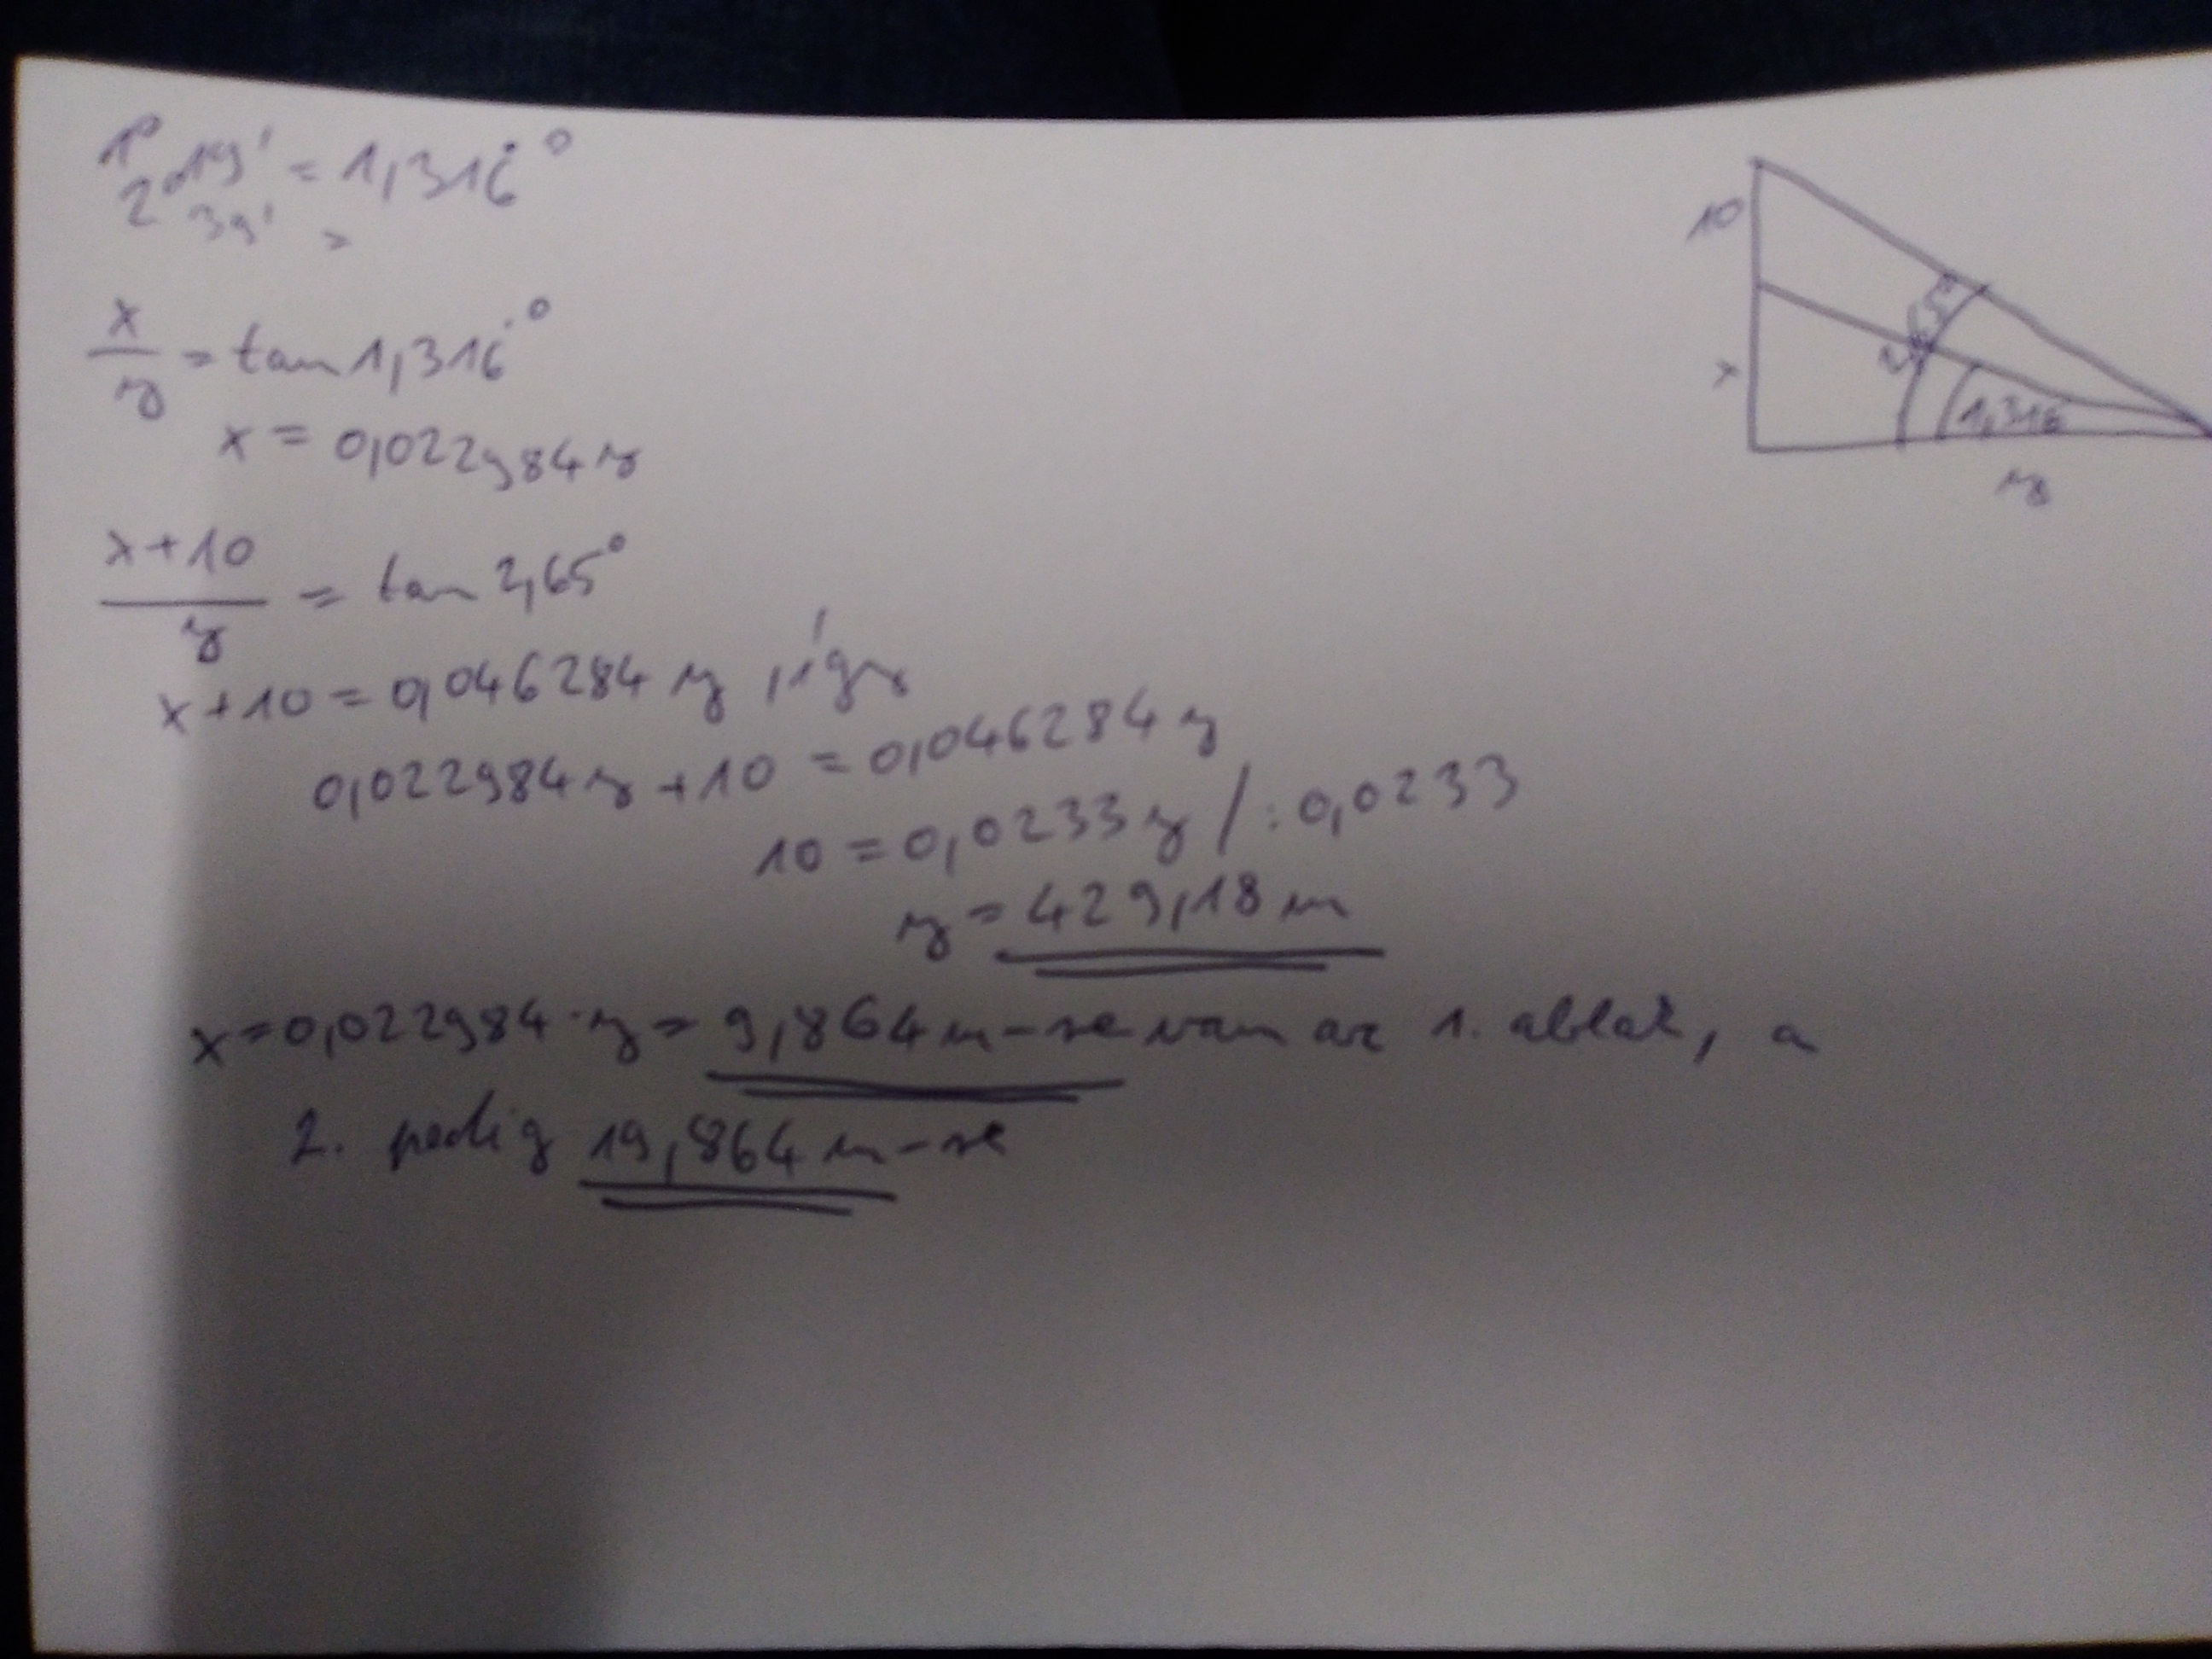 1°19' = 1,316̇°
2°39' =
x/y = tan 1,316̇°
x = 0,022984 y
x+10/y = tan 2,65°
x+10 = 0,046284 y, így
0,022984 y + 10 = 0,046284 y
10 = 0,0233 y / : 0,0233
y = 429,18 m
x = 0,022984 · y = 9,864 m-re van az 1. ablak, a
2. pedig 19,864 m-re
10
x
2,65
1,316
y